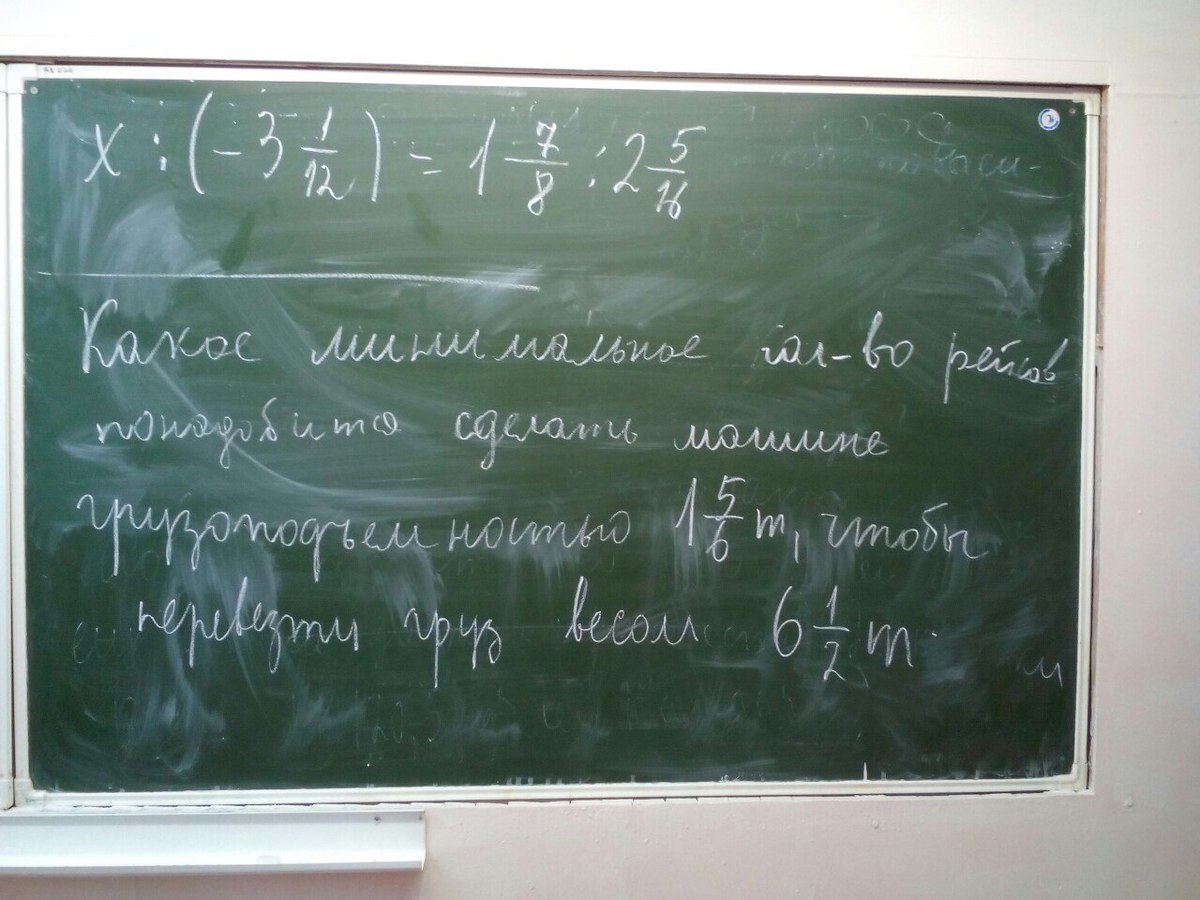 x : (-3 1/12) = 1 7/8 : 2 5/16
Какое минимальное кол-во рейсов
понадобится сделать машине
грузоподъемностью 1 5/6 т, чтобы
перевезти груз весом 6 1/2 т.